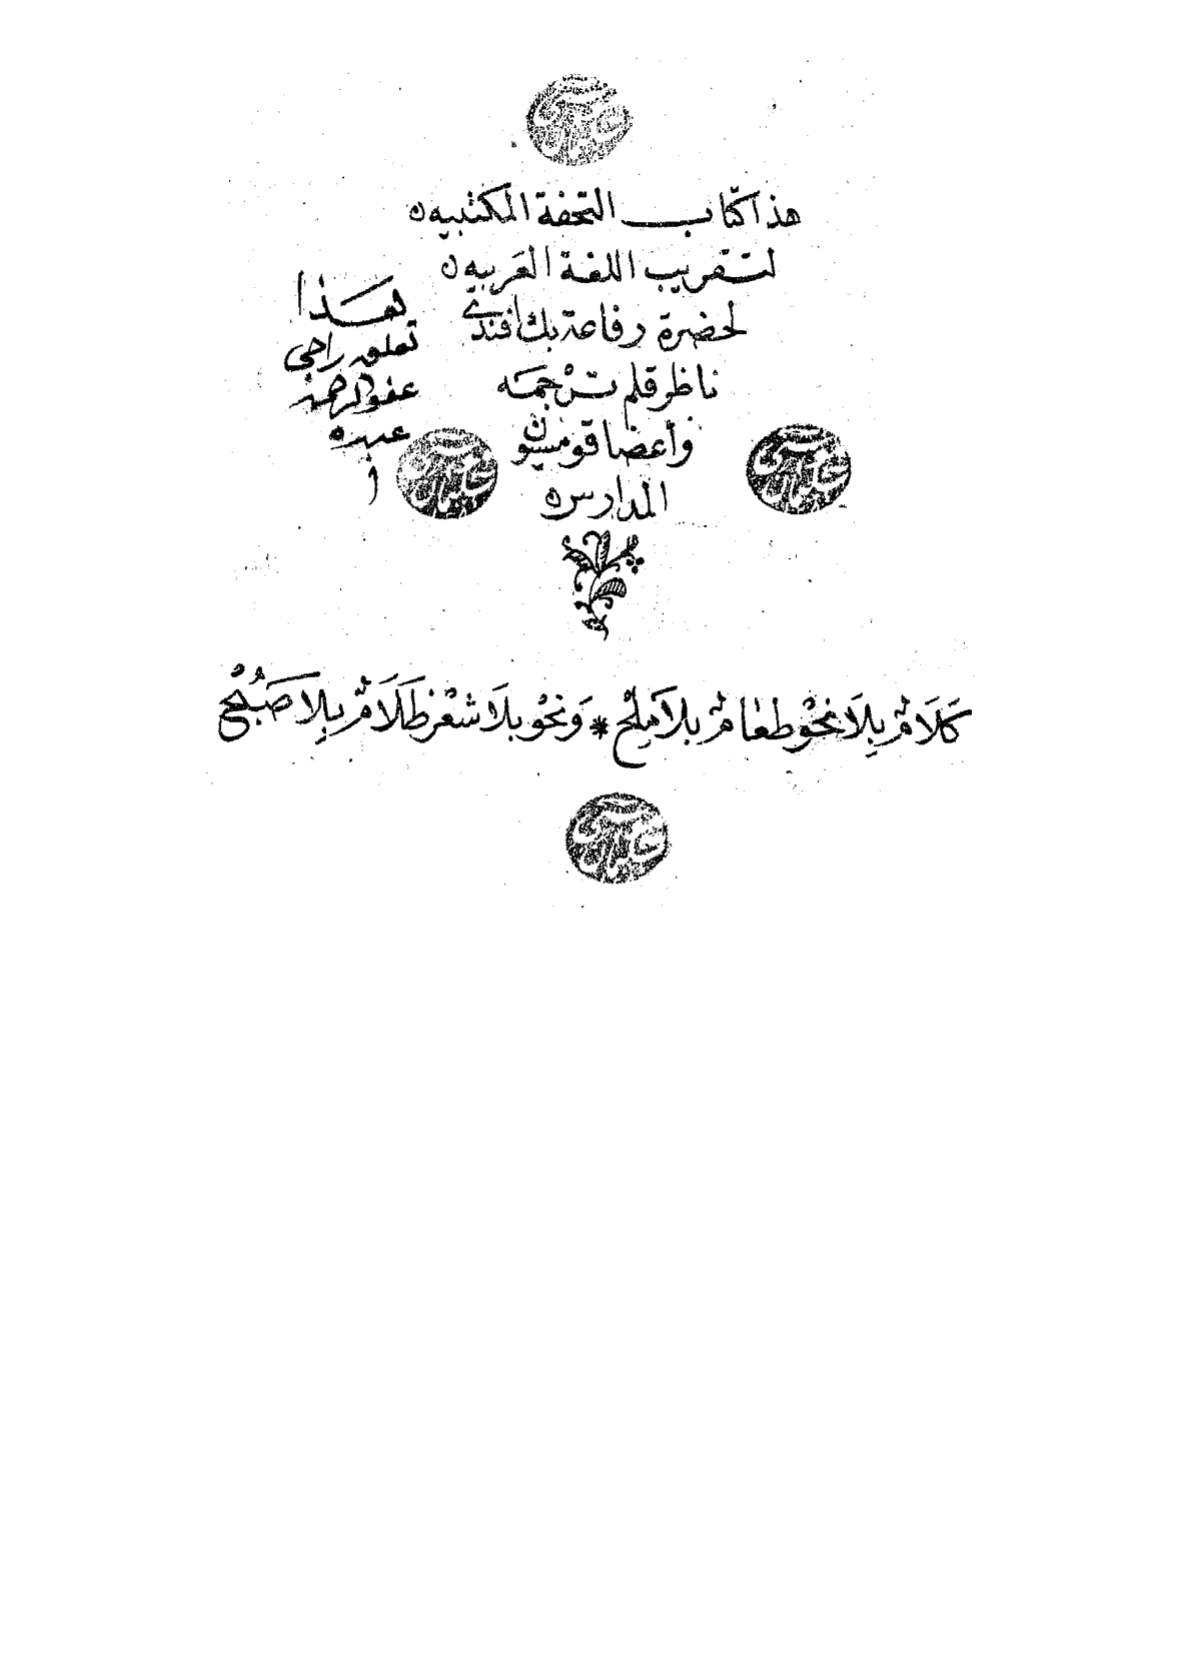 هذا كتاب التحفة المكتبيه
لتقريب اللغة العربيه
لحضرة رفاعة بك افندى
ناظر قلم ترجمه
وأعضا قومسيون
المدارس
لهذا
تعلق راجى
عفو الرحمن
عبده
كَلَامٌ بِلَا نَحْو طعامٌ بلا مِلْح * وَنَحْو بلَا شعْر ظَلَامٌ بِلَا صُبْح